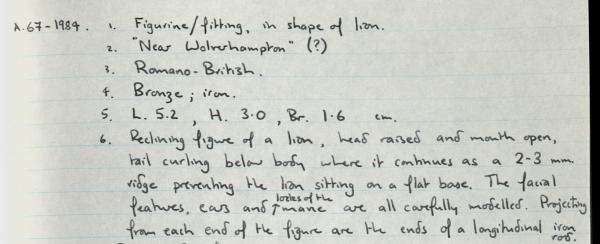 A.67-1984. 1. Figurine/fitting, in shape of lion.
2. "Near Wolverhampton" (?)
3. Romano-British.
4. Bronze; iron.
5. L. 5.2, H. 3.0, Br. 1.6 cm.
6. Reclining figure of a lion, head raised and mouth open,
tail curling below body where it continues as a 2-3 mm.
ridge preventing the lion sitting on a flat base. The facial
features, ears and ↑ locks of the mane are all carefully modelled. Projecting
from each end of the figure are the ends of a longitudinal iron
rod.